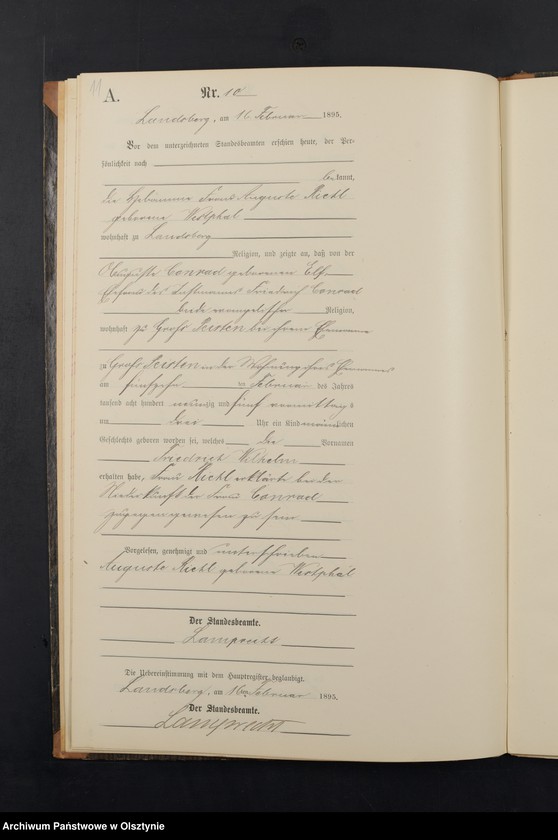 11
A.
Nr. 10
Landsberg, am 16 Februar 1895.
Vor dem unterzeichneten Standesbeamten erschien heute, der Per-
sönlichkeit nach
bekannt,
die Hebamme Frau Auguste Kiehl
geborene Westphal
wohnhaft zu Landsberg
Religion, und zeigte an, daß von der
Conrad geborenen
Ehefrau des Losmannes Friedrich Conrad
beide evangelischer Religion,
wohnhaft zu Groß Peisten bei ihrem Ehemanne
zu Groß Peisten in der Wohnung ihres Ehemannes
am fünfzehn ten Februar des Jahres
tausend acht hundert neunzig und fünf vormittags
um drei Uhr ein Kind männlichen
Geschlechts geboren worden sei, welches die Vornamen
Friedrich Wilhelm
erhalten habe, Frau Kiehl erklärte bei der
Niederkunft der Frau Conrad
zugegen gewesen zu sein
Vorgelesen, genehmigt und unterschrieben
Auguste Kiehl geborene Westphal
Der Standesbeamte.
Lamprecht
Die Uebereinstimmung mit dem Hauptregister beglaubigt.
Landsberg, am 16ten Februar 1895.
Der Standesbeamte.
Lamprecht
Archiwum Państwowe w Olsztynie